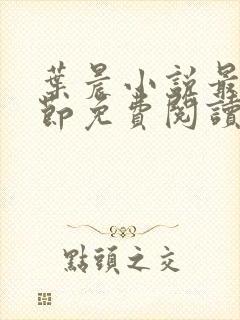 葉晨小説最
節免費閱讀
點頭之交